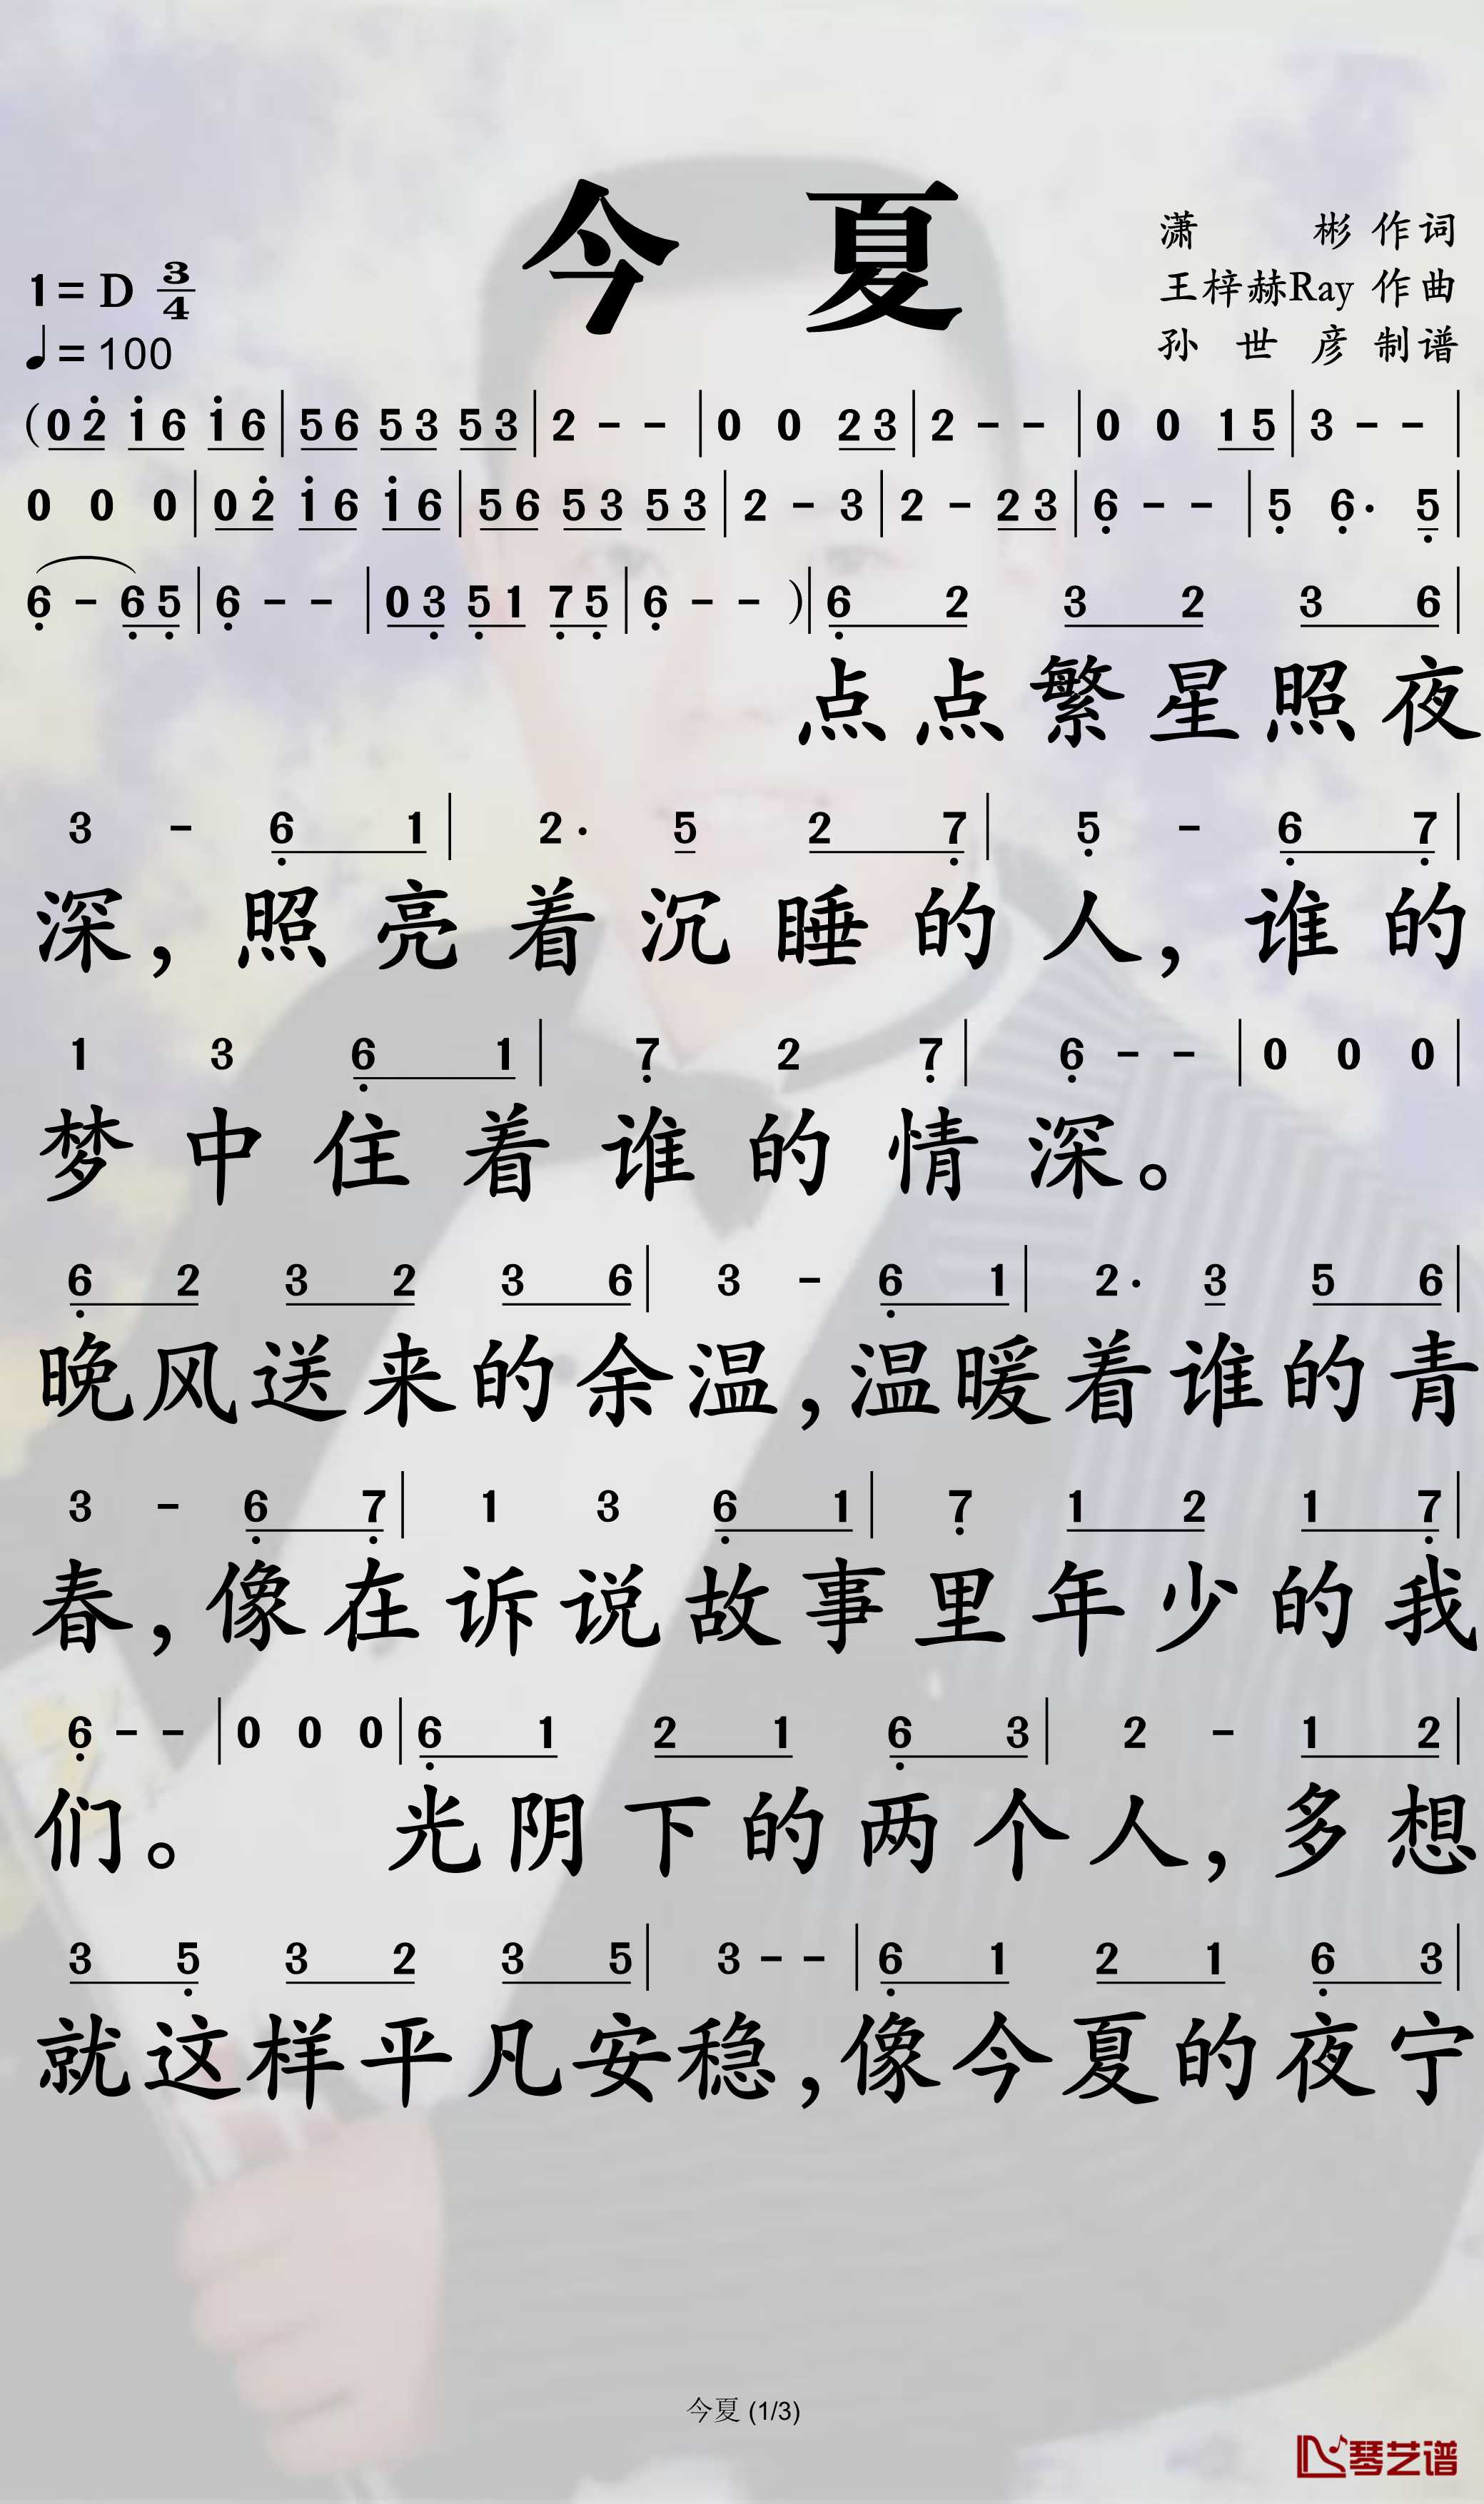 今 夏
潇 彬 作词
1= D 3/4
王梓赫Ray 作曲
♩= 100
孙 世 彦 制谱
(0 2̇ 1̇ 6 1̇ 6 | 5 6 5 3 5 3 | 2 - - | 0 0 2 3 | 2 - - | 0 0 1 5 | 3 - - |
0 0 0 | 0 2̇ 1̇ 6 1̇ 6 | 5 6 5 3 5 3 | 2 - 3 | 2 - 2 3 | 6̣ - - | 5̣ 6̣. 5̣ |
6̣ - 6̣ 5̣ | 6̣ - - | 0 3̣ 5̣ 1 7̣ 5̣ | 6̣ - - )| 6̣ 2 3 2 3 6 |
点 点 繁 星 照 夜
3 - 6̣ 1 | 2. 5 2 7̣ | 5̣ - 6̣ 7̣ |
深, 照 亮 着 沉 睡 的 人, 谁 的
1 3 6̣ 1 | 7̣ 2 7̣ | 6̣ - - | 0 0 0 |
梦 中 住 着 谁 的 情 深。
6̣ 2 3 2 3 6 | 3 - 6̣ 1 | 2. 3 5 6 |
晚 风 送 来 的 余 温, 温 暖 着 谁 的 青
3 - 6̣ 7̣ | 1 3 6̣ 1 | 7̣ 1 2 1 7̣ |
春, 像 在 诉 说 故 事 里 年 少 的 我
6̣ - - | 0 0 0 | 6̣ 1 2 1 6̣ 3 | 2 - 1 2 |
们。 光 阴 下 的 两 个 人, 多 想
3 5̣ 3 2 3 5 | 3 - - | 6̣ 1 2 1 6̣ 3 |
就 这 样 平 凡 安 稳, 像 今 夏 的 夜 宁
今夏 (1/3)
琴艺谱